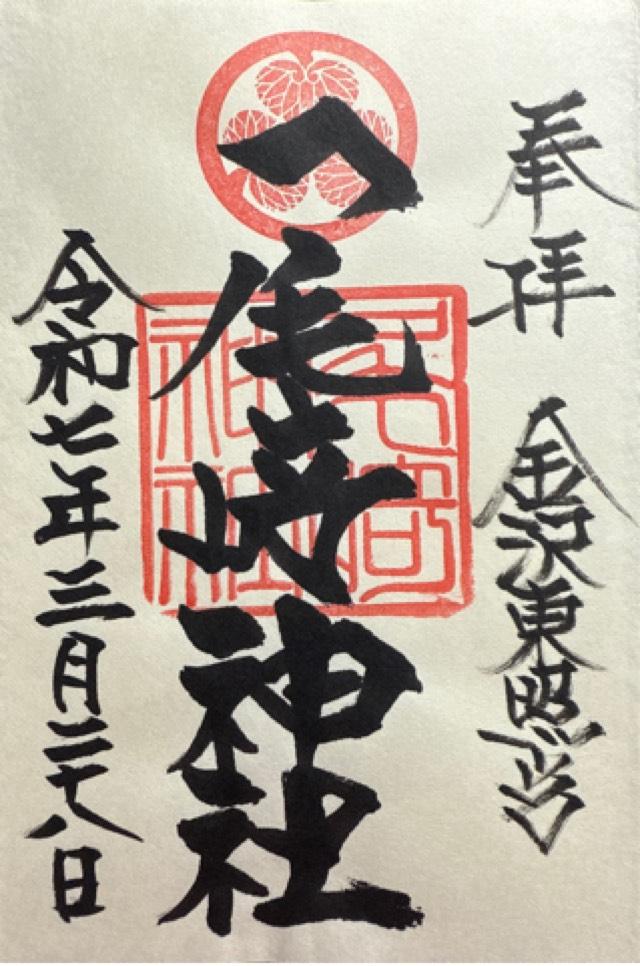 奉拝　金沢東照宮
尾﨑神社
令和七年三月二十八日
尾崎神社